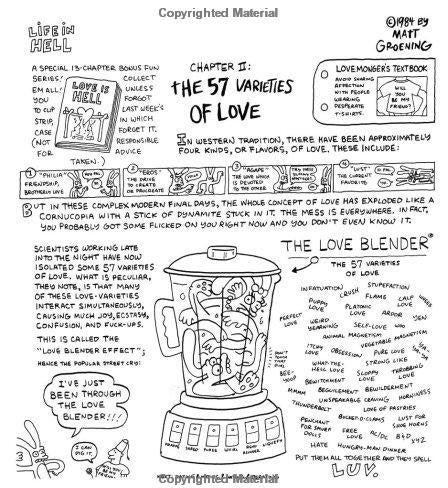 Copyrighted Material
LIFE IN
HELL
©1984 BY
MATT
GROENING
A SPECIAL 13-CHAPTER BONUS FUN
SERIES! COLLECT
'EM ALL! UNLESS
YOU FORGOT
TO CLIP LAST WEEK'S
STRIP, IN WHICH
CASE FORGET IT.
(NOT RESPONSIBLE
FOR ADVICE
TAKEN.)
LOVE IS
HELL
CHAPTER II:
THE 57 VARIETIES
OF LOVE
LOVEMONGER'S TEXTBOOK
AVOID SHARING
AFFECTION
WITH PEOPLE
WEARING
DESPERATE
T-SHIRTS.
WILL
YOU BE
MY FRIEND?
IN WESTERN TRADITION, THERE HAVE BEEN APPROXIMATELY
FOUR KINDS, OR FLAVORS, OF LOVE. THESE INCLUDE:
1 "PHILIA"
FRIENDSHIP,
BROTHERLY LOVE
2 "EROS"
THE DRIVE
TO CREATE
OR PROCREATE
3 "AGAPE"
THE LOVE WHICH
IS DEVOTED
TO THE OTHER
4 "LUST"
THE CURRENT
FAVORITE.
BUT IN THESE COMPLEX MODERN FINAL DAYS, THE WHOLE CONCEPT OF LOVE HAS EXPLODED LIKE A
CORNUCOPIA WITH A STICK OF DYNAMITE STUCK IN IT. THE MESS IS EVERYWHERE. IN FACT,
YOU PROBABLY GOT SOME FLICKED ON YOU RIGHT NOW AND YOU DON'T EVEN KNOW IT.
SCIENTISTS WORKING LATE
INTO THE NIGHT HAVE NOW
ISOLATED SOME 57 VARIETIES
OF LOVE. WHAT IS PECULIAR,
THEY NOTE, IS THAT MANY
OF THESE LOVE-VARIETIES
INTERACT SIMULTANEOUSLY,
CAUSING MUCH JOY, ECSTASY,
CONFUSION, AND FUCK-UPS.
THIS IS CALLED THE
"LOVE BLENDER EFFECT";
HENCE THE POPULAR STREET CRY:
I'VE JUST
BEEN THROUGH
THE LOVE
BLENDER!!!
I CAN
DIG IT.
THE LOVE BLENDER®
THE 57 VARIETIES
OF LOVE
INFATUATION CRUSH STUPEFACTION
PUPPY LOVE FLAME CALF LOVE
PERFECT LOVE PLATONIC LOVE ARDOR YEN
WEIRD YEARNING SELF-LOVE WOO
ANIMAL MAGNETISM
ITCHY LOVE OBSESSION VEGETABLE MAGNETISM
PURE LOVE
WHAT THE HELL LOVE STRONG LIKE
SLOPPY LOVE THROBBING LOVE
BEWITCHMENT
MMMM BEGUILEMENT BEWILDERMENT
UNSPEAKABLE CRAVING HORNINESS
THUNDERBOLT LOVE OF PASTRIES
PENCHANT FOR SMURF DOLLS BUCKET-O-CLAMS LUST FOR SHOE HORNS
FREE LOVE AC/DC B+D XYZ
HATE HUNGRY-MAN DINNER
PUT THEM ALL TOGETHER AND THEY SPELL
LUV.
Copyrighted Material